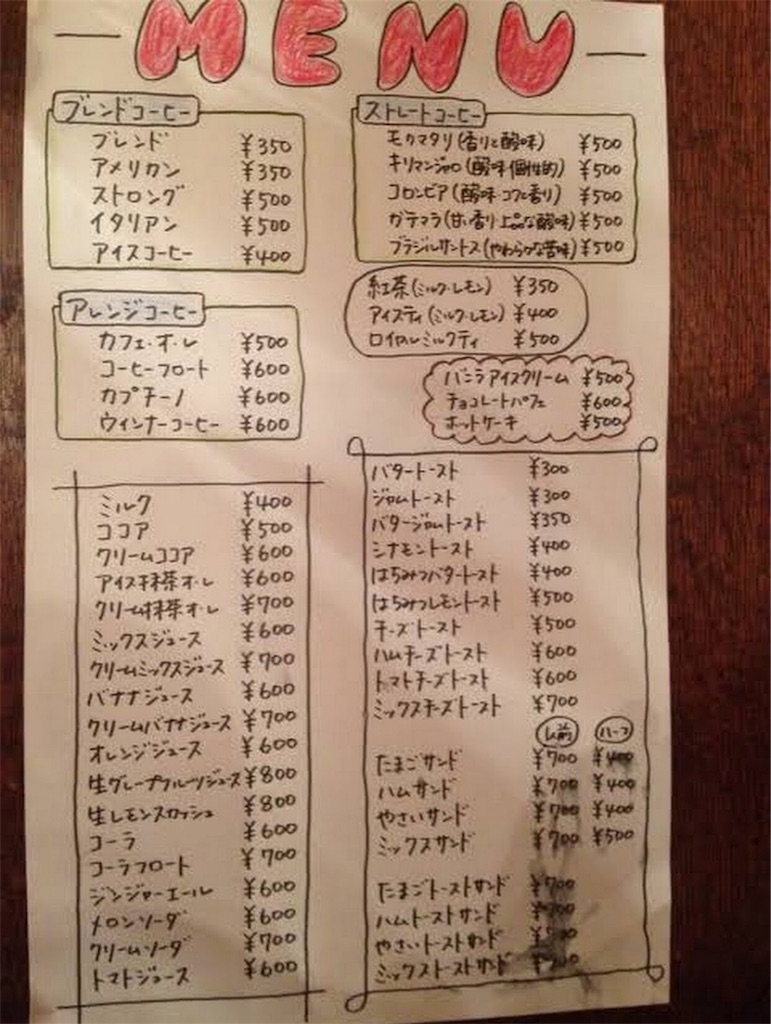 MENU
ブレンドコーヒー
ブレンド ¥350
アメリカン ¥350
ストロング ¥500
イタリアン ¥500
アイスコーヒー ¥400
アレンジコーヒー
カフェ・オ・レ ¥500
コーヒーフロート ¥600
カプチーノ ¥600
ウィンナーコーヒー ¥600
ミルク ¥400
ココア ¥500
クリームココア ¥600
アイス抹茶オ・レ ¥600
クリーム抹茶オ・レ ¥700
ミックスジュース ¥600
クリームミックスジュース ¥700
バナナジュース ¥600
クリームバナナジュース ¥700
オレンジジュース ¥600
生グレープフルーツジュース ¥800
生レモンスカッシュ ¥800
コーラ ¥600
コーラフロート ¥700
ジンジャーエール ¥600
メロンソーダ ¥600
クリームソーダ ¥700
トマトジュース ¥600
ストレートコーヒー
モカマタリ(香りと酸味) ¥500
キリマンジャロ(酸味 個性的) ¥500
コロンビア(酸味・コクと香り) ¥500
ガテマラ(甘い香り・上品な酸味) ¥500
ブラジルサントス(やわらかな苦味) ¥500
紅茶(ミルク・レモン) ¥350
アイスティ(ミルク・レモン) ¥400
ロイヤルミルクティ ¥500
バニラアイスクリーム ¥500
チョコレートパフェ ¥600
ホットケーキ ¥500
バタートースト ¥300
ジャムトースト ¥300
バタージャムトースト ¥350
シナモントースト ¥400
はちみつバタートースト ¥400
はちみつレモントースト ¥500
チーズトースト ¥500
ハムチーズトースト ¥600
トマトチーズトースト ¥600
ミックスチーズトースト ¥700
1人前 ハーフ
たまごサンド ¥700 ¥400
ハムサンド ¥700 ¥400
やさいサンド ¥700 ¥400
ミックスサンド ¥700 ¥500
たまごトーストサンド ¥700
ハムトーストサンド
やさいトーストサンド
ミックストーストサンド